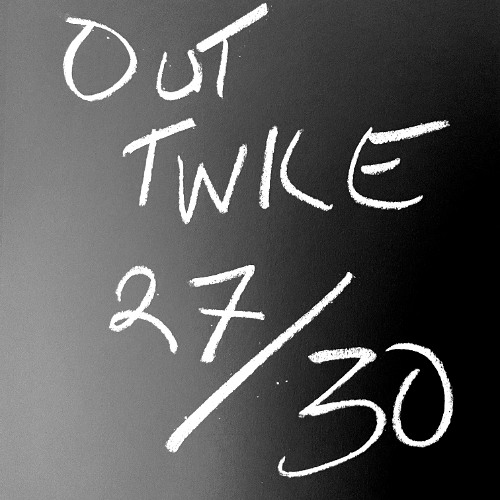 OUT
TWICE
27/30